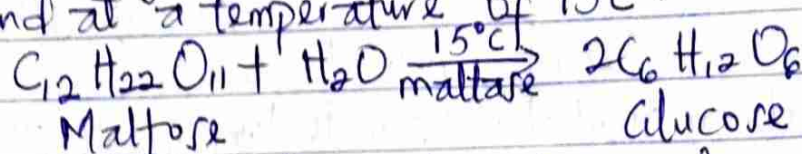 nd at a temperature of 15c
C₁₂H₂₂O₁₁ + H₂O 15°C→ maltase 2C₆H₁₂O₆
Maltose Glucose